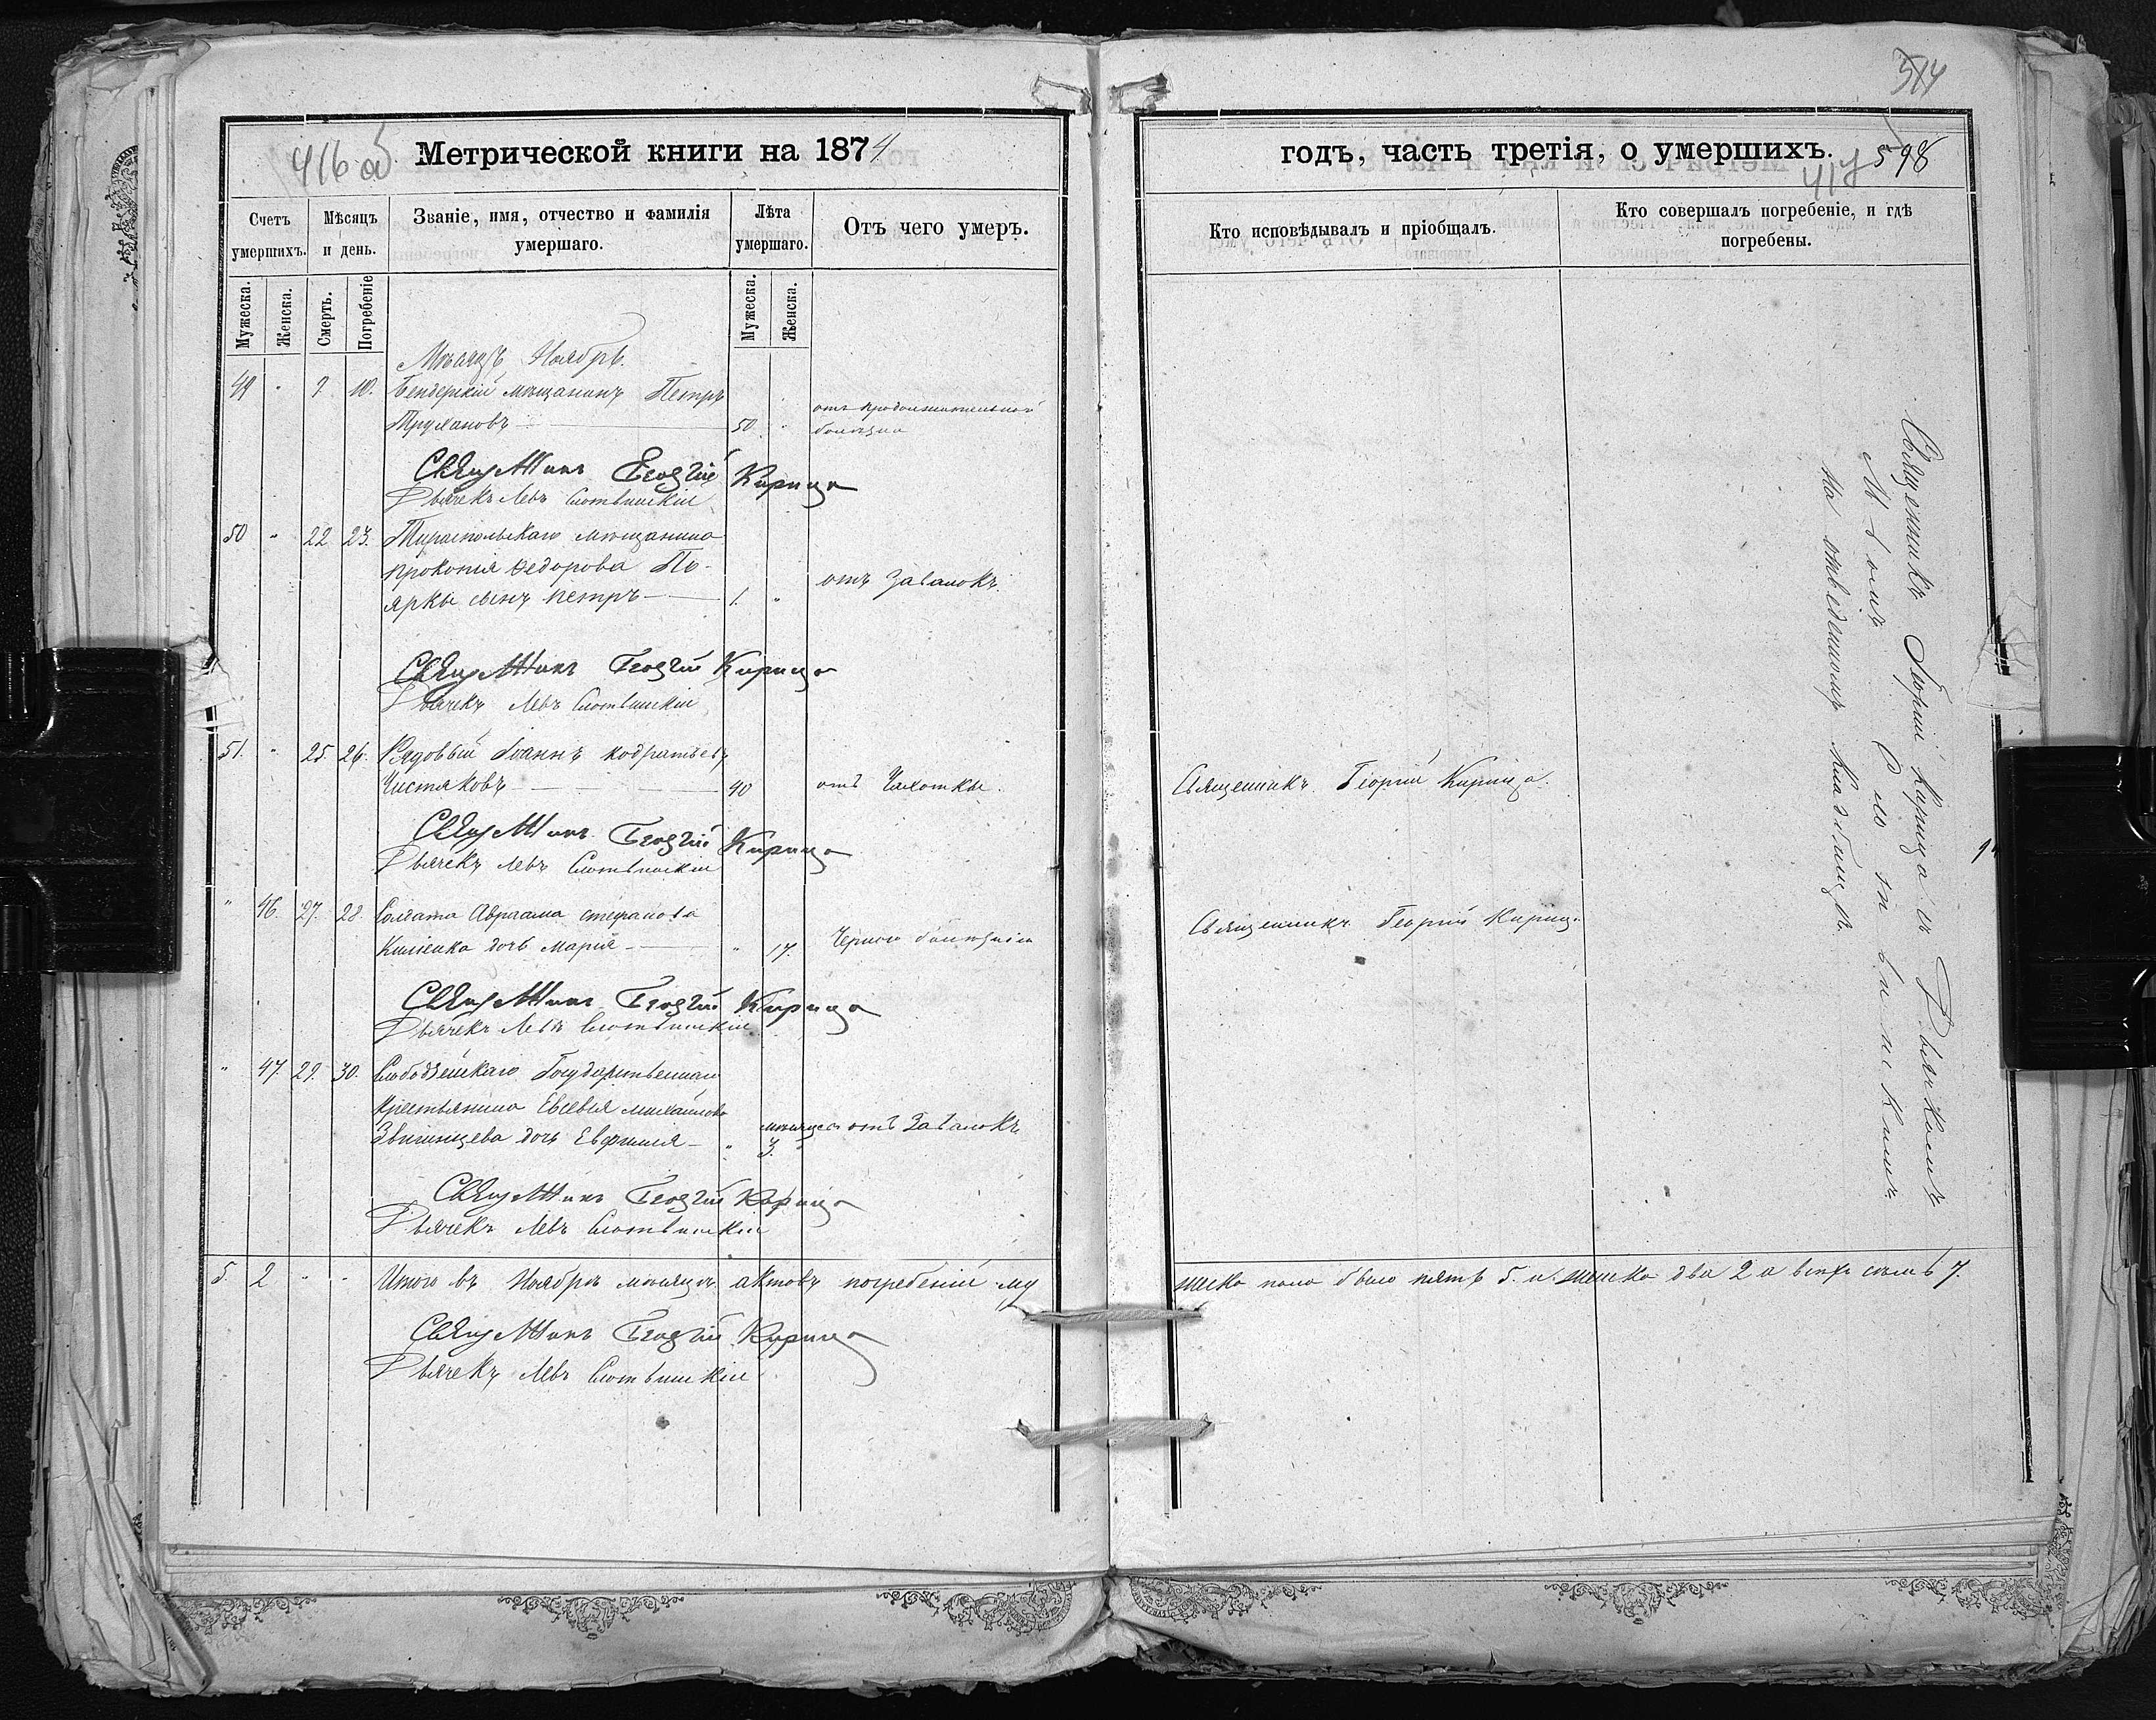 416 об
Метрической книги на 1874
Счетъ умершихъ.
Мѣсяцъ и день.
Званіе, имя, отчество и фамилія умершаго.
Лѣта умершаго.
Отъ чего умеръ.
Мужеска.
Женска.
Смерть.
Погребеніе
Мужеска.
Женска.
Мѣсяцъ Ноябрь.
49 " 9. 10. Бендерскій мѣщанинъ Петръ
Трухановъ 50. " отъ продолжительной
болѣзни
Священникъ Георгій Кирица
Дьячекъ Левъ
50 " 22 23. Тираспольскаго мѣщанина
Прокопія Федорова По-
ярки сынъ Петръ 1. " отъ Завалокъ.
Священникъ Георгій Кирица
Дьячекъ Левъ
51. " 25. 26. Рядовый Іоаннъ Кодратьевъ
Чистяковъ 40 отъ Чахотки.
Священникъ Георгій Кирица
Дьячекъ Левъ
" 46. 27. 28. Солдата Авраама Стефанова
дочь Марія " 17.
Священникъ Георгій Кирица
Дьячекъ Левъ
" 47. 29. 30. Слободзейскаго Государственнаго
Крестьянина Евсевія Михайлова
дочь Евфимія " 3. отъ Завалокъ
Священникъ Георгій Кирица
Дьячекъ Левъ
5. 2 " " Итого въ Ноябрѣ мѣсяцѣ актовъ погребеній му
Священникъ Георгій Кирица
Дьячекъ Левъ
514
годъ, часть третія, о умершихъ.
417
598
Кто исповѣдывалъ и пріобщалъ.
Кто совершалъ погребеніе, и гдѣ погребены.
Священникъ Георгій Кирица.
Священникъ Георгій Кириц.
Священникъ Георгій Кирица съ Дьячкомъ
на отведенномъ Кладбищѣ.
жеска пола было пять 5. и женска два 2 а всѣхъ семь 7.